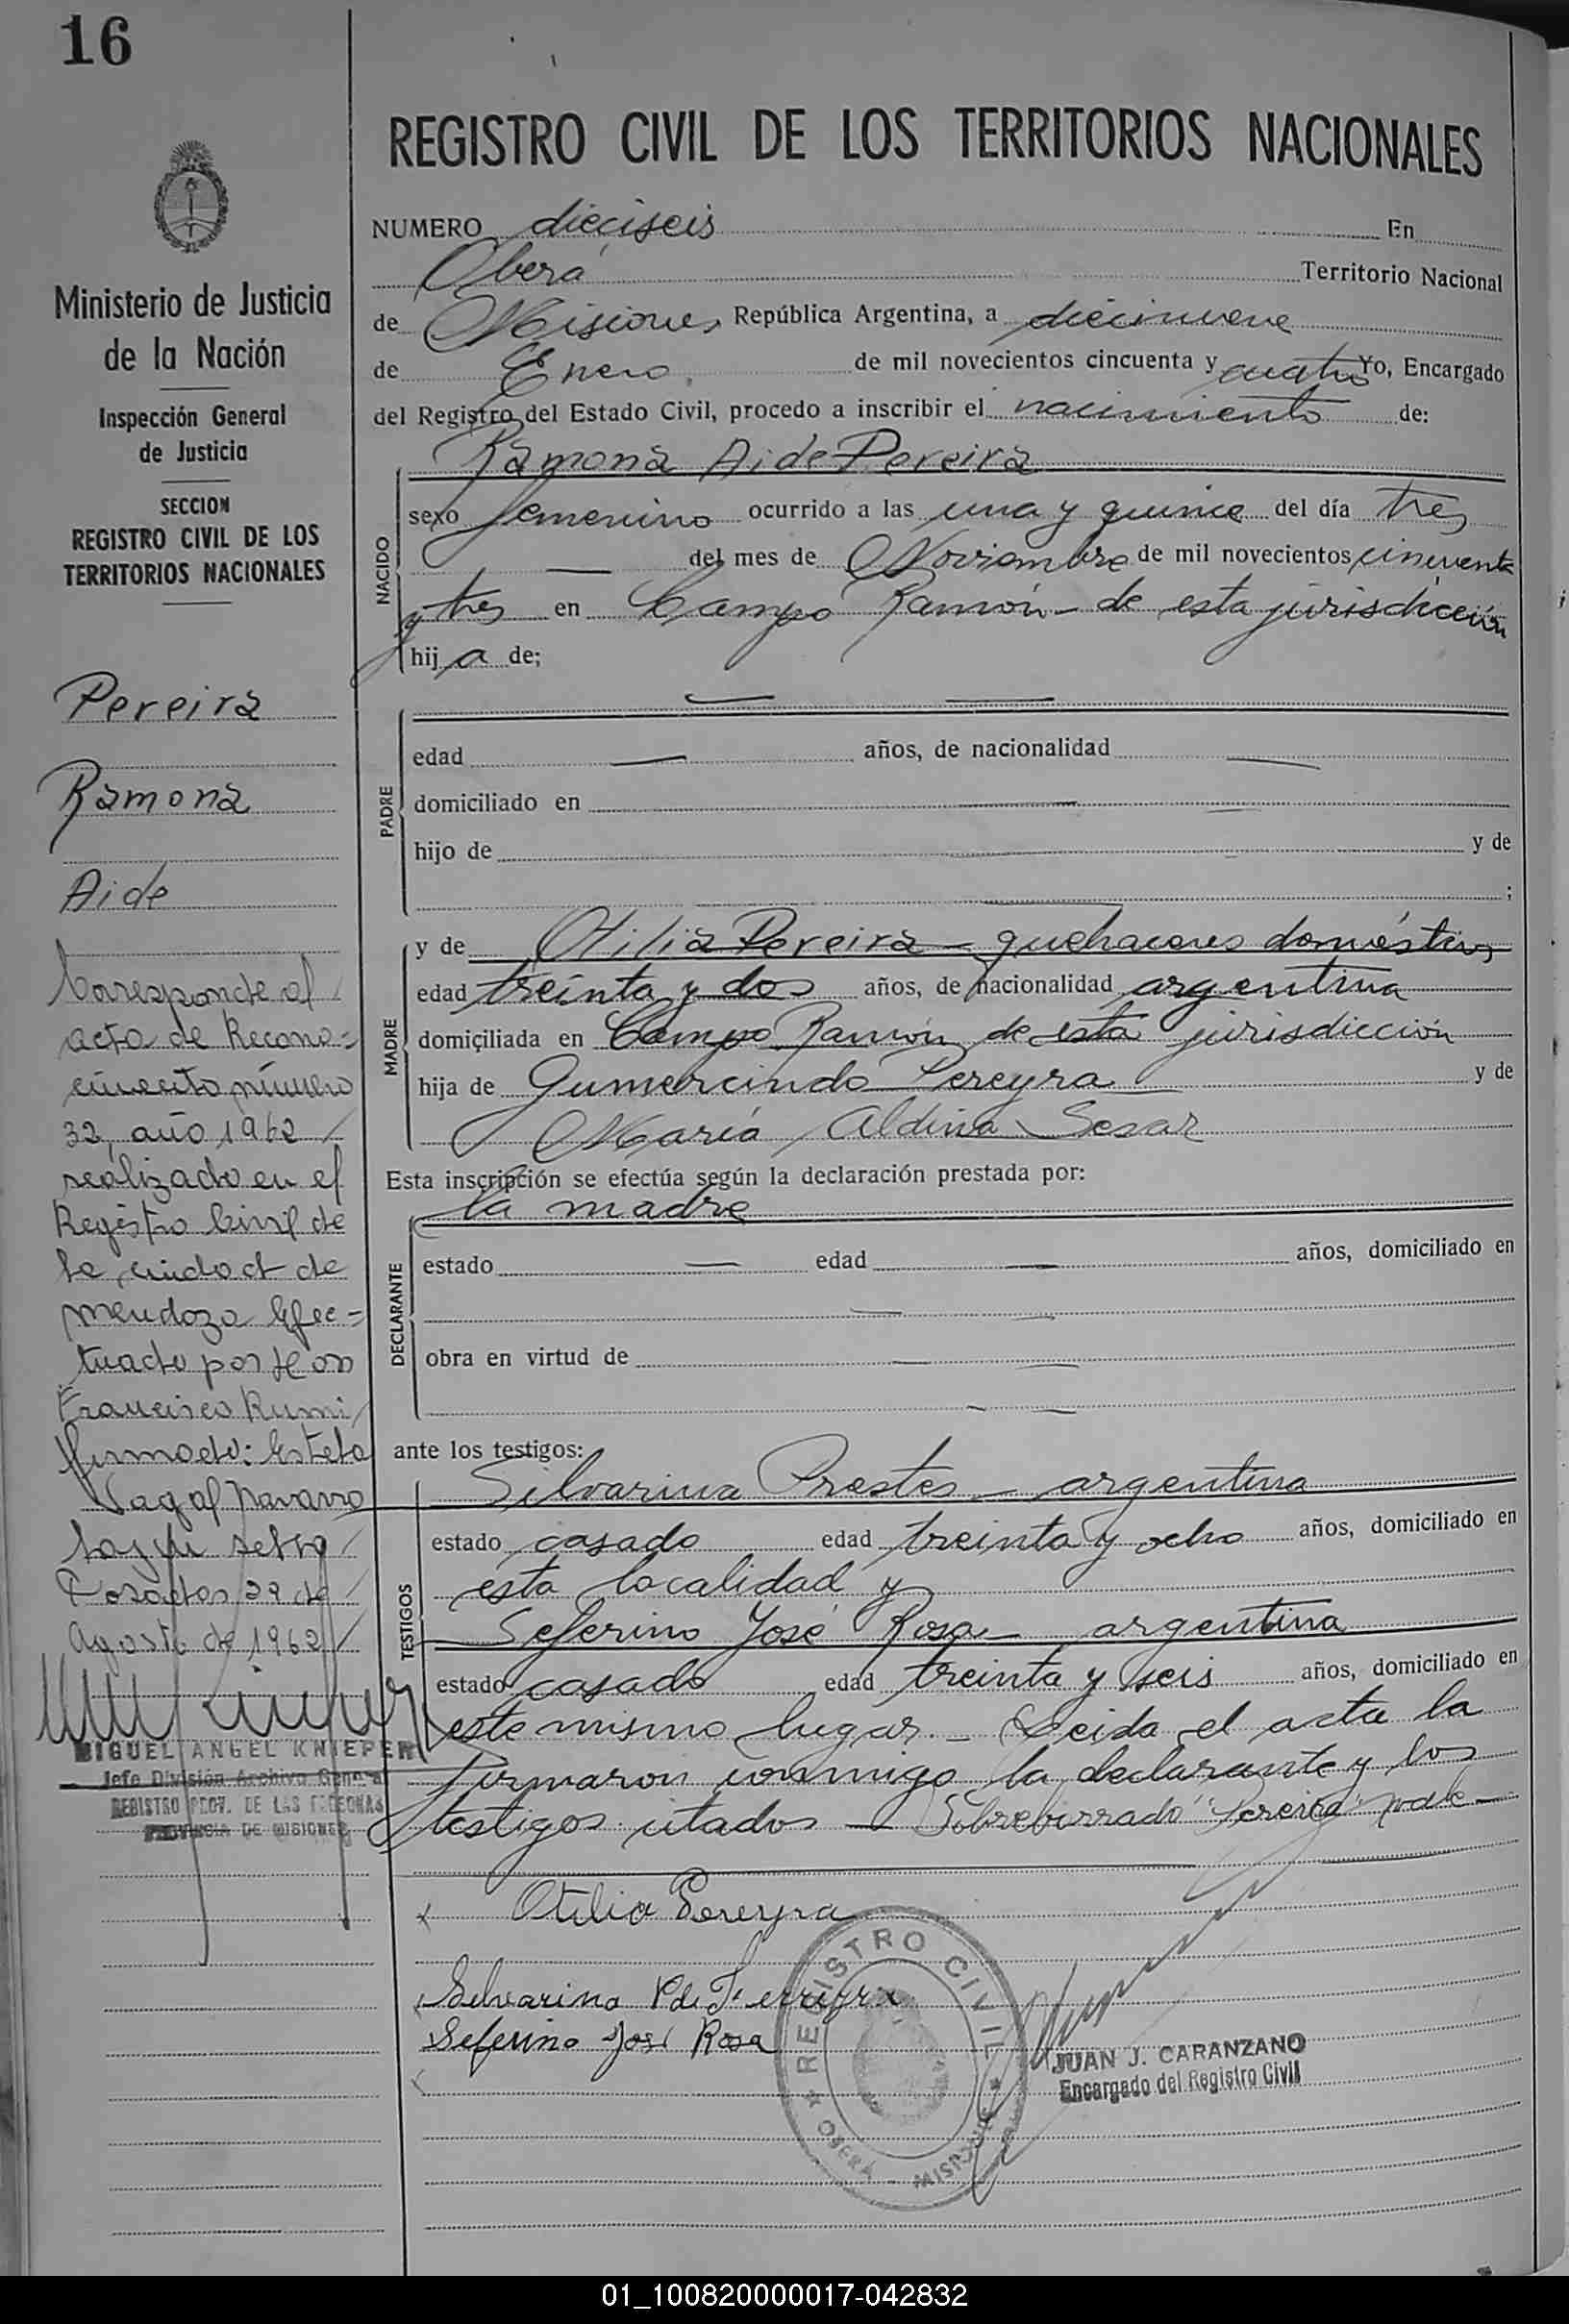 16
REGISTRO CIVIL DE LOS TERRITORIOS NACIONALES
Ministerio de Justicia
de la Nación
Inspección General
de Justicia
SECCION
REGISTRO CIVIL DE LOS
TERRITORIOS NACIONALES
Pereira
Ramona
Aide
Corresponde al
acta de Recono=
cimiento número
32, año 1962
realizado en el
Registro Civil de
la ciudad de
Mendoza Efec=
tuado por
Francisco Rumi
firmado: Estela
Navarro
Posadas 29 de
Agosto de 1962
MIGUEL ANGEL KNIEPER
Jefe División Archivo General
REGISTRO PROV. DE LAS PERSONAS
PROVINCIA DE MISIONES
NUMERO dieciseis En
Oberá Territorio Nacional
de Misiones República Argentina, a diecinueve
de Enero de mil novecientos cincuenta y cuatro Yo, Encargado
del Registro del Estado Civil, procedo a inscribir el nacimiento de:
Ramona Aide Pereira
NACIDO
sexo femenino ocurrido a las una y quince del día tres
del mes de Noviembre de mil novecientos cincuenta
y tres en Campo Ramón - de esta jurisdicción
hij a de;
PADRE
edad años, de nacionalidad
domiciliado en
hijo de y de
;
MADRE
y de Otilia Pereira - quehaceres domésticos
edad treinta y dos años, de nacionalidad argentina
domiciliada en Campo Ramón de esta jurisdicción
hija de Gumercindo Pereyra y de
María Aldina Sesar
Esta inscripción se efectúa según la declaración prestada por:
la madre
DECLARANTE
estado edad años, domiciliado en
obra en virtud de
ante los testigos:
TESTIGOS
Silvarina Prestes - argentina
estado casado edad treinta y ocho años, domiciliado en
esta localidad y
Seferino José Rosa - argentina
estado casado edad treinta y seis años, domiciliado en
este mismo lugar. - Leida el acta la
firmaron conmigo la declarante y los
testigos citados - Sobreborrado "Pereira" vale -
Otilia Pereyra
Selvarina P de Ferreyra
Seferino José Rosa
REGISTRO CIVIL
OBERA - MISIONES
JUAN J. CARANZANO
Encargado del Registro Civil
01_100820000017-042832